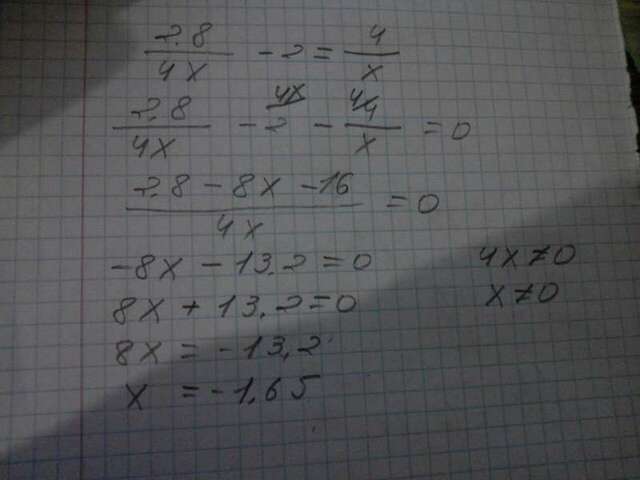 2.8/4x - 2 = 4/x
2.8/4x - 2 4x/ - 4/4/x = 0
2.8 - 8x - 16/4x = 0
-8x - 13.2 = 0
4x ≠ 0
8x + 13.2 = 0
x ≠ 0
8x = -13,2
x = -1.65